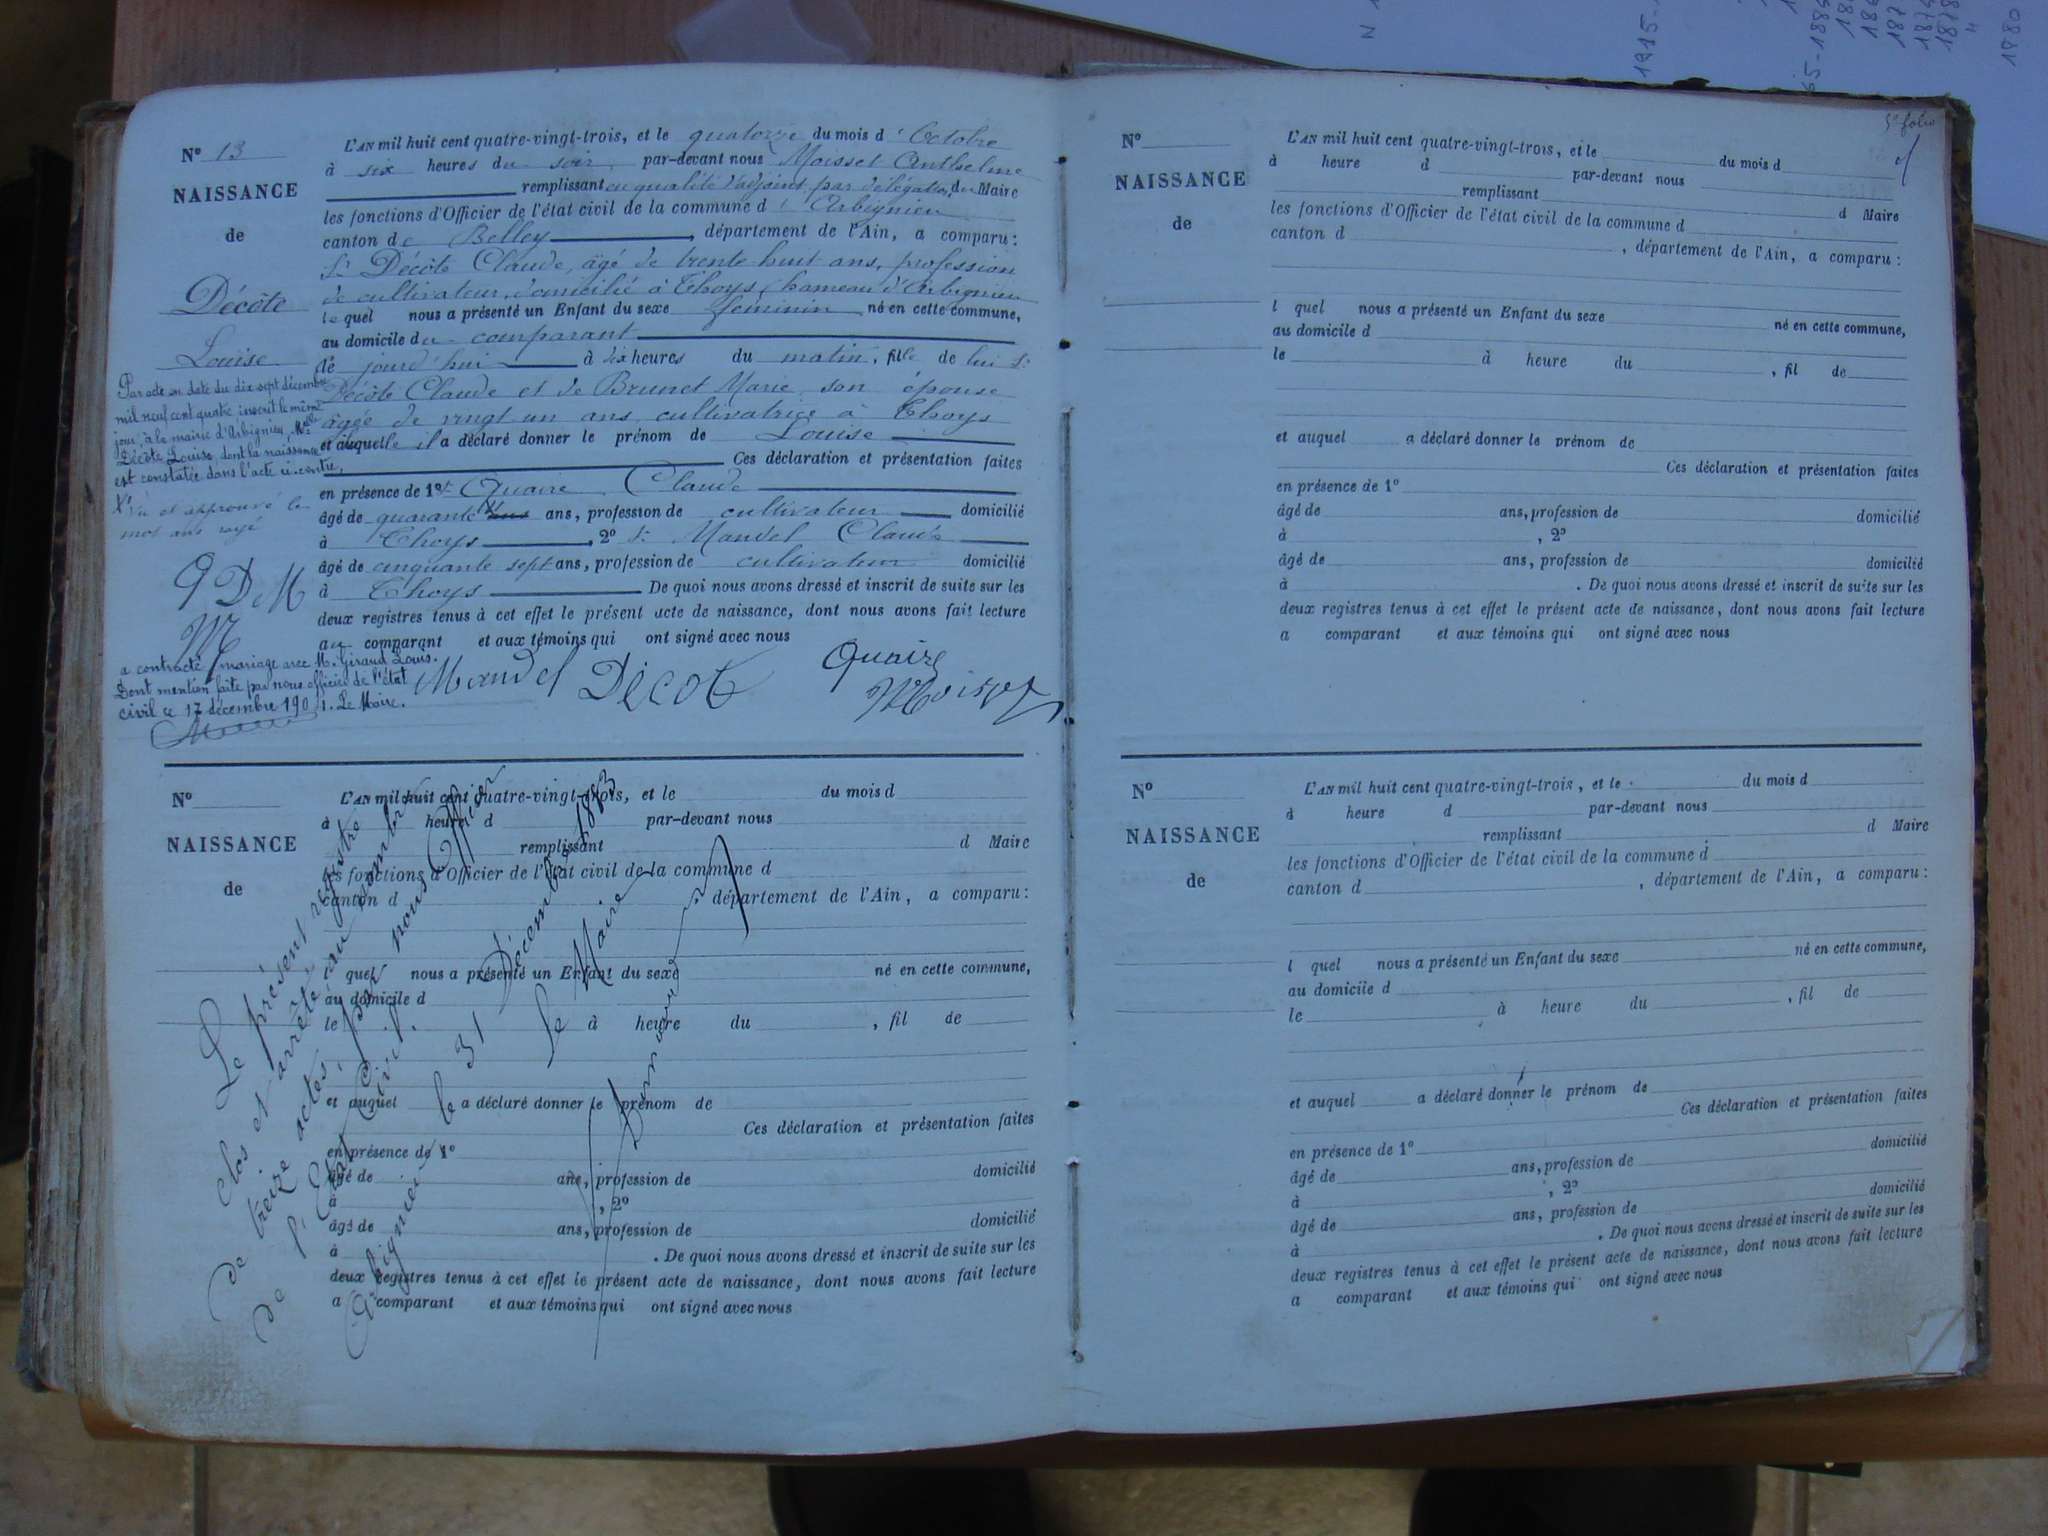 Nº 13
NAISSANCE
de
Décôte
Louise
L'AN mil huit cent quatre-vingt-trois, et le quatorze du mois d'Octobre
à six heures du soir, par-devant nous Moisset Anthelme
remplissant en qualité d'adjoint par délégation du Maire
les fonctions d'Officier de l'état civil de la commune d'Arbignieu
canton de Belley, département de l'Ain, a comparu:
Sr Décôte Claude, âgé de trente-huit ans, profession
de cultivateur, domicilié à Thoys, hameau d'Arbignieu
le quel nous a présenté un Enfant du sexe féminin né en cette commune,
au domicile du comparant
le jourd'hui à six heures du matin, fille de lui Sr
Décôte Claude et de Brunet Marie son épouse
âgée de vingt un ans cultivatrice à Thoys
et auquelle il a déclaré donner le prénom de Louise
Ces déclaration et présentation faites
en présence de 1º Sr Quaire Claude
âgé de quarante ans, profession de cultivateur domicilié
à Thoys, 2º Sr Mandel Claude
âgé de cinquante sept ans, profession de cultivateur domicilié
à Thoys De quoi nous avons dressé et inscrit de suite sur les
deux registres tenus à cet effet le présent acte de naissance, dont nous avons fait lecture
au comparant et aux témoins qui ont signé avec nous
Mandel Décot Quaire
Moisset
Par acte en date du dix sept décembre
mil neuf cent quatre inscrit le même
jour, à la mairie d'Arbignieu, Melle
Décôte Louise, dont la naissance
est constatée dans l'acte ci-contre,
Vu et approuvé le
mot ans rayé
Q D M
M
a contracté mariage avec M. Giraud Louis.
Dont mention faite par nous officier de l'état
civil ce 17 décembre 1904. Le Maire.
Nº
NAISSANCE
de
L'AN mil huit cent quatre-vingt-trois, et le du mois d
à heure d par-devant nous
remplissant d Maire
les fonctions d'Officier de l'état civil de la commune d
canton d département de l'Ain, a comparu:
l quel nous a présenté un Enfant du sexe né en cette commune,
au domicile d
le à heure du , fil de
et auquel a déclaré donner le prénom de
Ces déclaration et présentation faites
en présence de 1º
âgé de ans, profession de domicilié
à , 2º
âgé de ans, profession de domicilié
à . De quoi nous avons dressé et inscrit de suite sur les
deux registres tenus à cet effet le présent acte de naissance, dont nous avons fait lecture
a comparant et aux témoins qui ont signé avec nous
Le présent registre
clos et arrêté au nombre
de treize actes, par nous Officier
de l'Etat Civil.
Arbignieu le 31 Décembre 1883
le Maire
5e folio
Nº
NAISSANCE
de
L'AN mil huit cent quatre-vingt-trois, et le du mois d
à heure d par-devant nous
remplissant d Maire
les fonctions d'Officier de l'état civil de la commune d
canton d , département de l'Ain, a comparu:
l quel nous a présenté un Enfant du sexe né en cette commune,
au domicile d
le à heure du , fil de
et auquel a déclaré donner le prénom de
Ces déclaration et présentation faites
en présence de 1º
âgé de ans, profession de domicilié
à , 2º
âgé de ans, profession de domicilié
à . De quoi nous avons dressé et inscrit de suite sur les
deux registres tenus à cet effet le présent acte de naissance, dont nous avons fait lecture
a comparant et aux témoins qui ont signé avec nous
Nº
NAISSANCE
de
L'AN mil huit cent quatre-vingt-trois, et le du mois d
à heure d par-devant nous
remplissant d Maire
les fonctions d'Officier de l'état civil de la commune d
canton d , département de l'Ain, a comparu:
l quel nous a présenté un Enfant du sexe né en cette commune,
au domicile d
le à heure du , fil de
et auquel a déclaré donner le prénom de
Ces déclaration et présentation faites
en présence de 1º
âgé de ans, profession de domicilié
à , 2º
âgé de ans, profession de domicilié
à . De quoi nous avons dressé et inscrit de suite sur les
deux registres tenus à cet effet le présent acte de naissance, dont nous avons fait lecture
a comparant et aux témoins qui ont signé avec nous